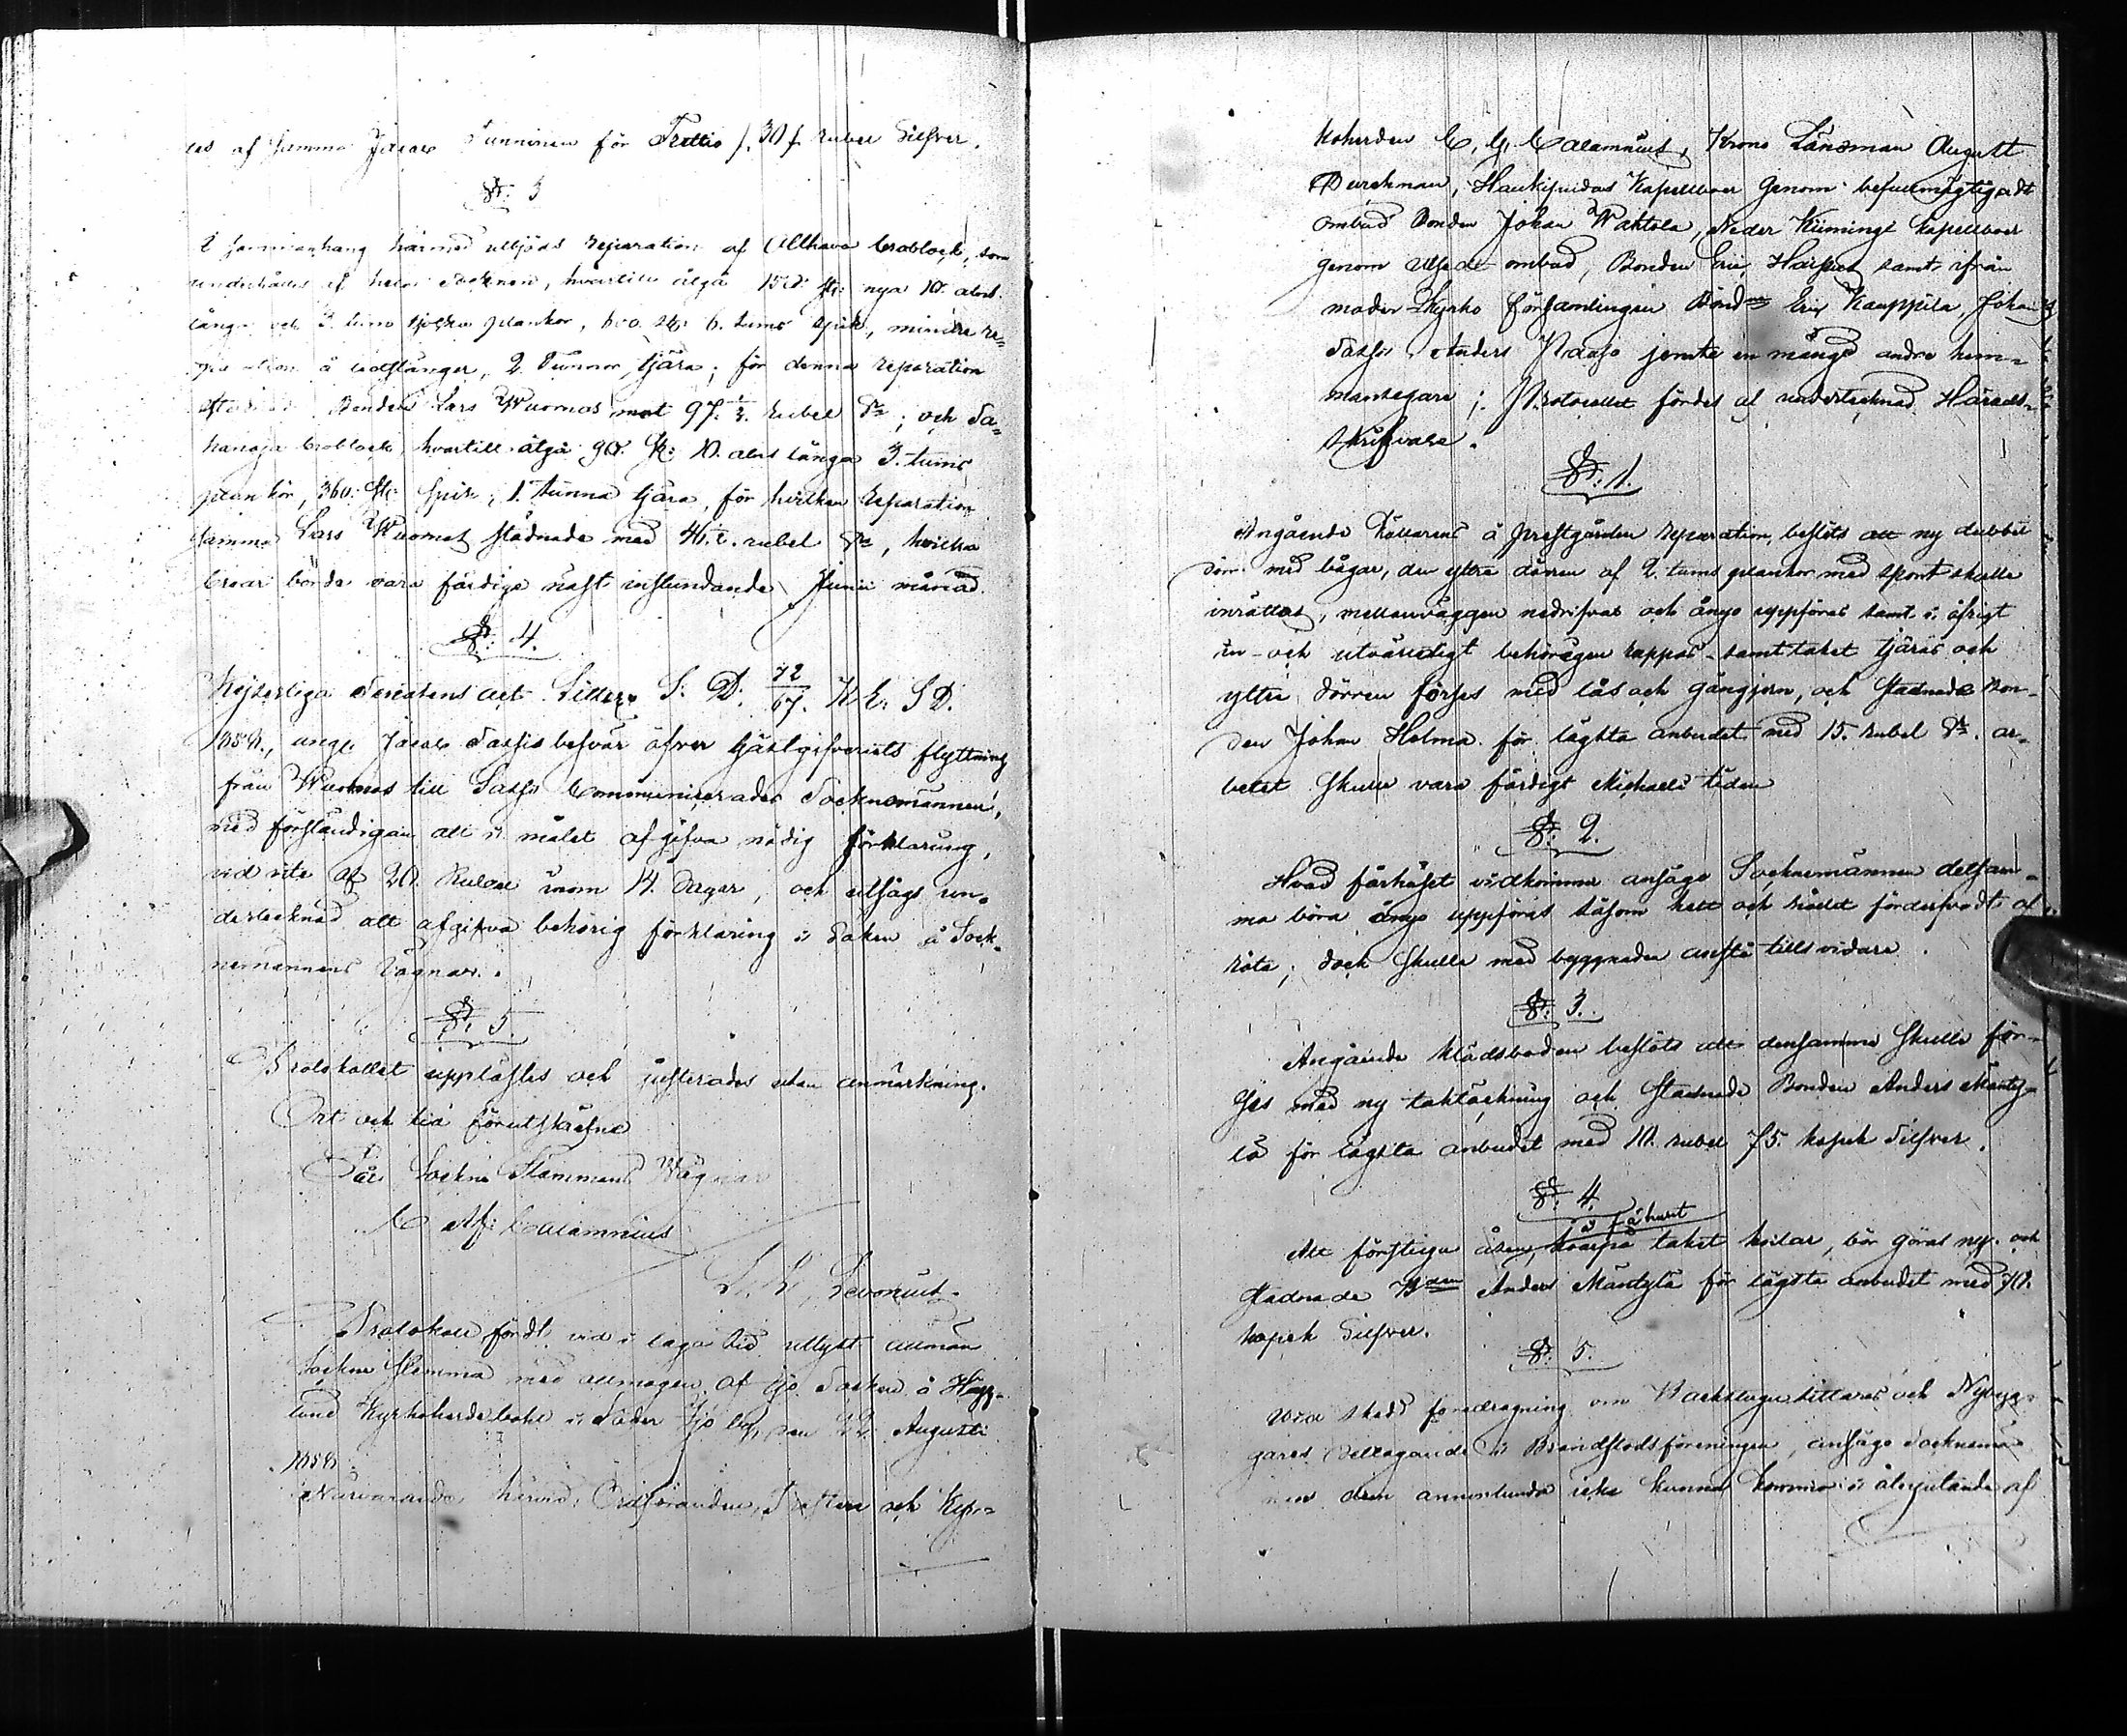 tes af samma Jacob Tunninen för Trettio /: 30 :/ rubel Silfver.
§: 3
I sammanhang härmed utbjöds reparation af Alkava broblock, som
underhålles af hela Socknen, hvartill åtgå 150 st: nya 10. alns
långa och 3. tums tjocka plankor, 600. st: 6. tums spik, mindre re-
paration å ledstänger, 2. Tunnor tjära; för denna reparation
stadnade Bonden Lars Wuornos mot 97. ½. rubel Sr; och Sa-
hanaja broblock, hvartill åtgå 90. st: 10. alns långa 3. tums
plankor, 360. st: spik, 1. tunna tjära, för hvilken reparation
samma Lars Wuornos stadnade med 41. ½. rubel Sr, hvilka
broar borde vara färdiga näst instundande Junii månad.
§: 4.
Kejserliga Senatens act Litter S: D: 72/67. K. E. S D.
1858., ang: Jacob Sassis besvär öfver Gästgifveriets flyttning
från Wuornos till Sassi Communicerades Socknemännen,
med förständigan att i målet afgifva nödig förklaring,
vid vite af 20. Rubel inom 14. dagar, och utsågs un-
dertecknad att afgifva behörig förklaring i Saken å Sock-
nemännens vägnar.
§: 5.
Protokollet upplästes och justerades utan anmärkning.
Ort och tid förutskrefne
På Sockne Stämmans Wägnar
C. M: Calamnius
L. L. Levonius.
Protokoll fördt vid i laga tid utlyst allmän
Sockne Stämma med allmogen af Ijo Socken å Hägg-
lund Kyrkoherdebohl i Söder Ijo by, den 22. Augusti
1858.
Närvarande härvid, Ordföranden, Prosten och Kyr-
koherden C. G. Calamnius, Krono Länsman August
Burchman, Haukipudas Kapellboer genom befullmägtigadt
ombud Bonden Johan Wahtola, Neder Kiiminge Kapellboer
genom utsedt ombud, Bonden Eric Haipus samt ifrån
moder Kyrko församlingen Bönderne Eric Kauppila, Johan
Sassi, Anders Paaso jemte en mängd andre hem-
mansegare; Protocollet fördes af undertecknad Härads-
skrifvare.
§: 1.
Angående Källarens å prestgården reparation, beslöts att ny dubbel
dörr med bågar, den yttre dörren af 2. tums plankor med spont skulle
inrättas, mellanväggen nedrifvas och ånyo uppföras samt i öfrigt
in- och utvändigt behörigen rappas samt taket tjäras och
yttre dörren förses med lås och gångjern, och stadnade Bon-
den Johan Holma för lägsta anbudet med 15. rubel Sr. ar-
betet skulle vara färdigt Michaeli tiden
§: 2.
Hvad fårhuset vidkommer ansågo Socknemännen detsam-
ma böra ånyo uppföras såsom helt och hållet förderfvadt af
röta; dock skulle med byggnaden anstå tills vidare.
§: 3.
Angående klädsboden beslöts att densamma skulle för-
ses med ny taktäckning och stadnade Bonden Anders Mänty-
lä för lägsta anbudet med 10. rubel 75. kopek Silfver.
§: 4.
å fähuset
Att förstuga åsen, hvarpå taket hvilar, bör göras ny. och
stadnade Bden Anders Mäntylä för lägsta anbudet med 70.
kopek Silfver.
§: 5.
Wid skedd föredragning om Backstugusittares och Nybyg-
gares deltagande i Brandstodsföreningen, ansågo Socknemän-
nen dem annorlunda icke kunna komma i åtnjutande af